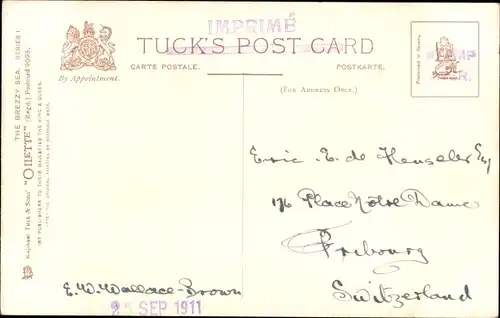 IMPRIMÉ
TUCK'S POST CARD
CARTE POSTALE.
POSTKARTE.
(FOR ADDRESS ONLY.)
By Appointment.
THE BREEZY SEA. SERIES I
Raphael Tuck & Sons' "OILETTE" (Regd.) Postcard 9095.
ART PUBLISHERS TO THEIR MAJESTIES THE KING & QUEEN.
Eric E. de Hengeler Esq
176 Place Nôtre Dame
Fribourg
Switzerland
E. W. Wallace-Brown
25 SEP 1911